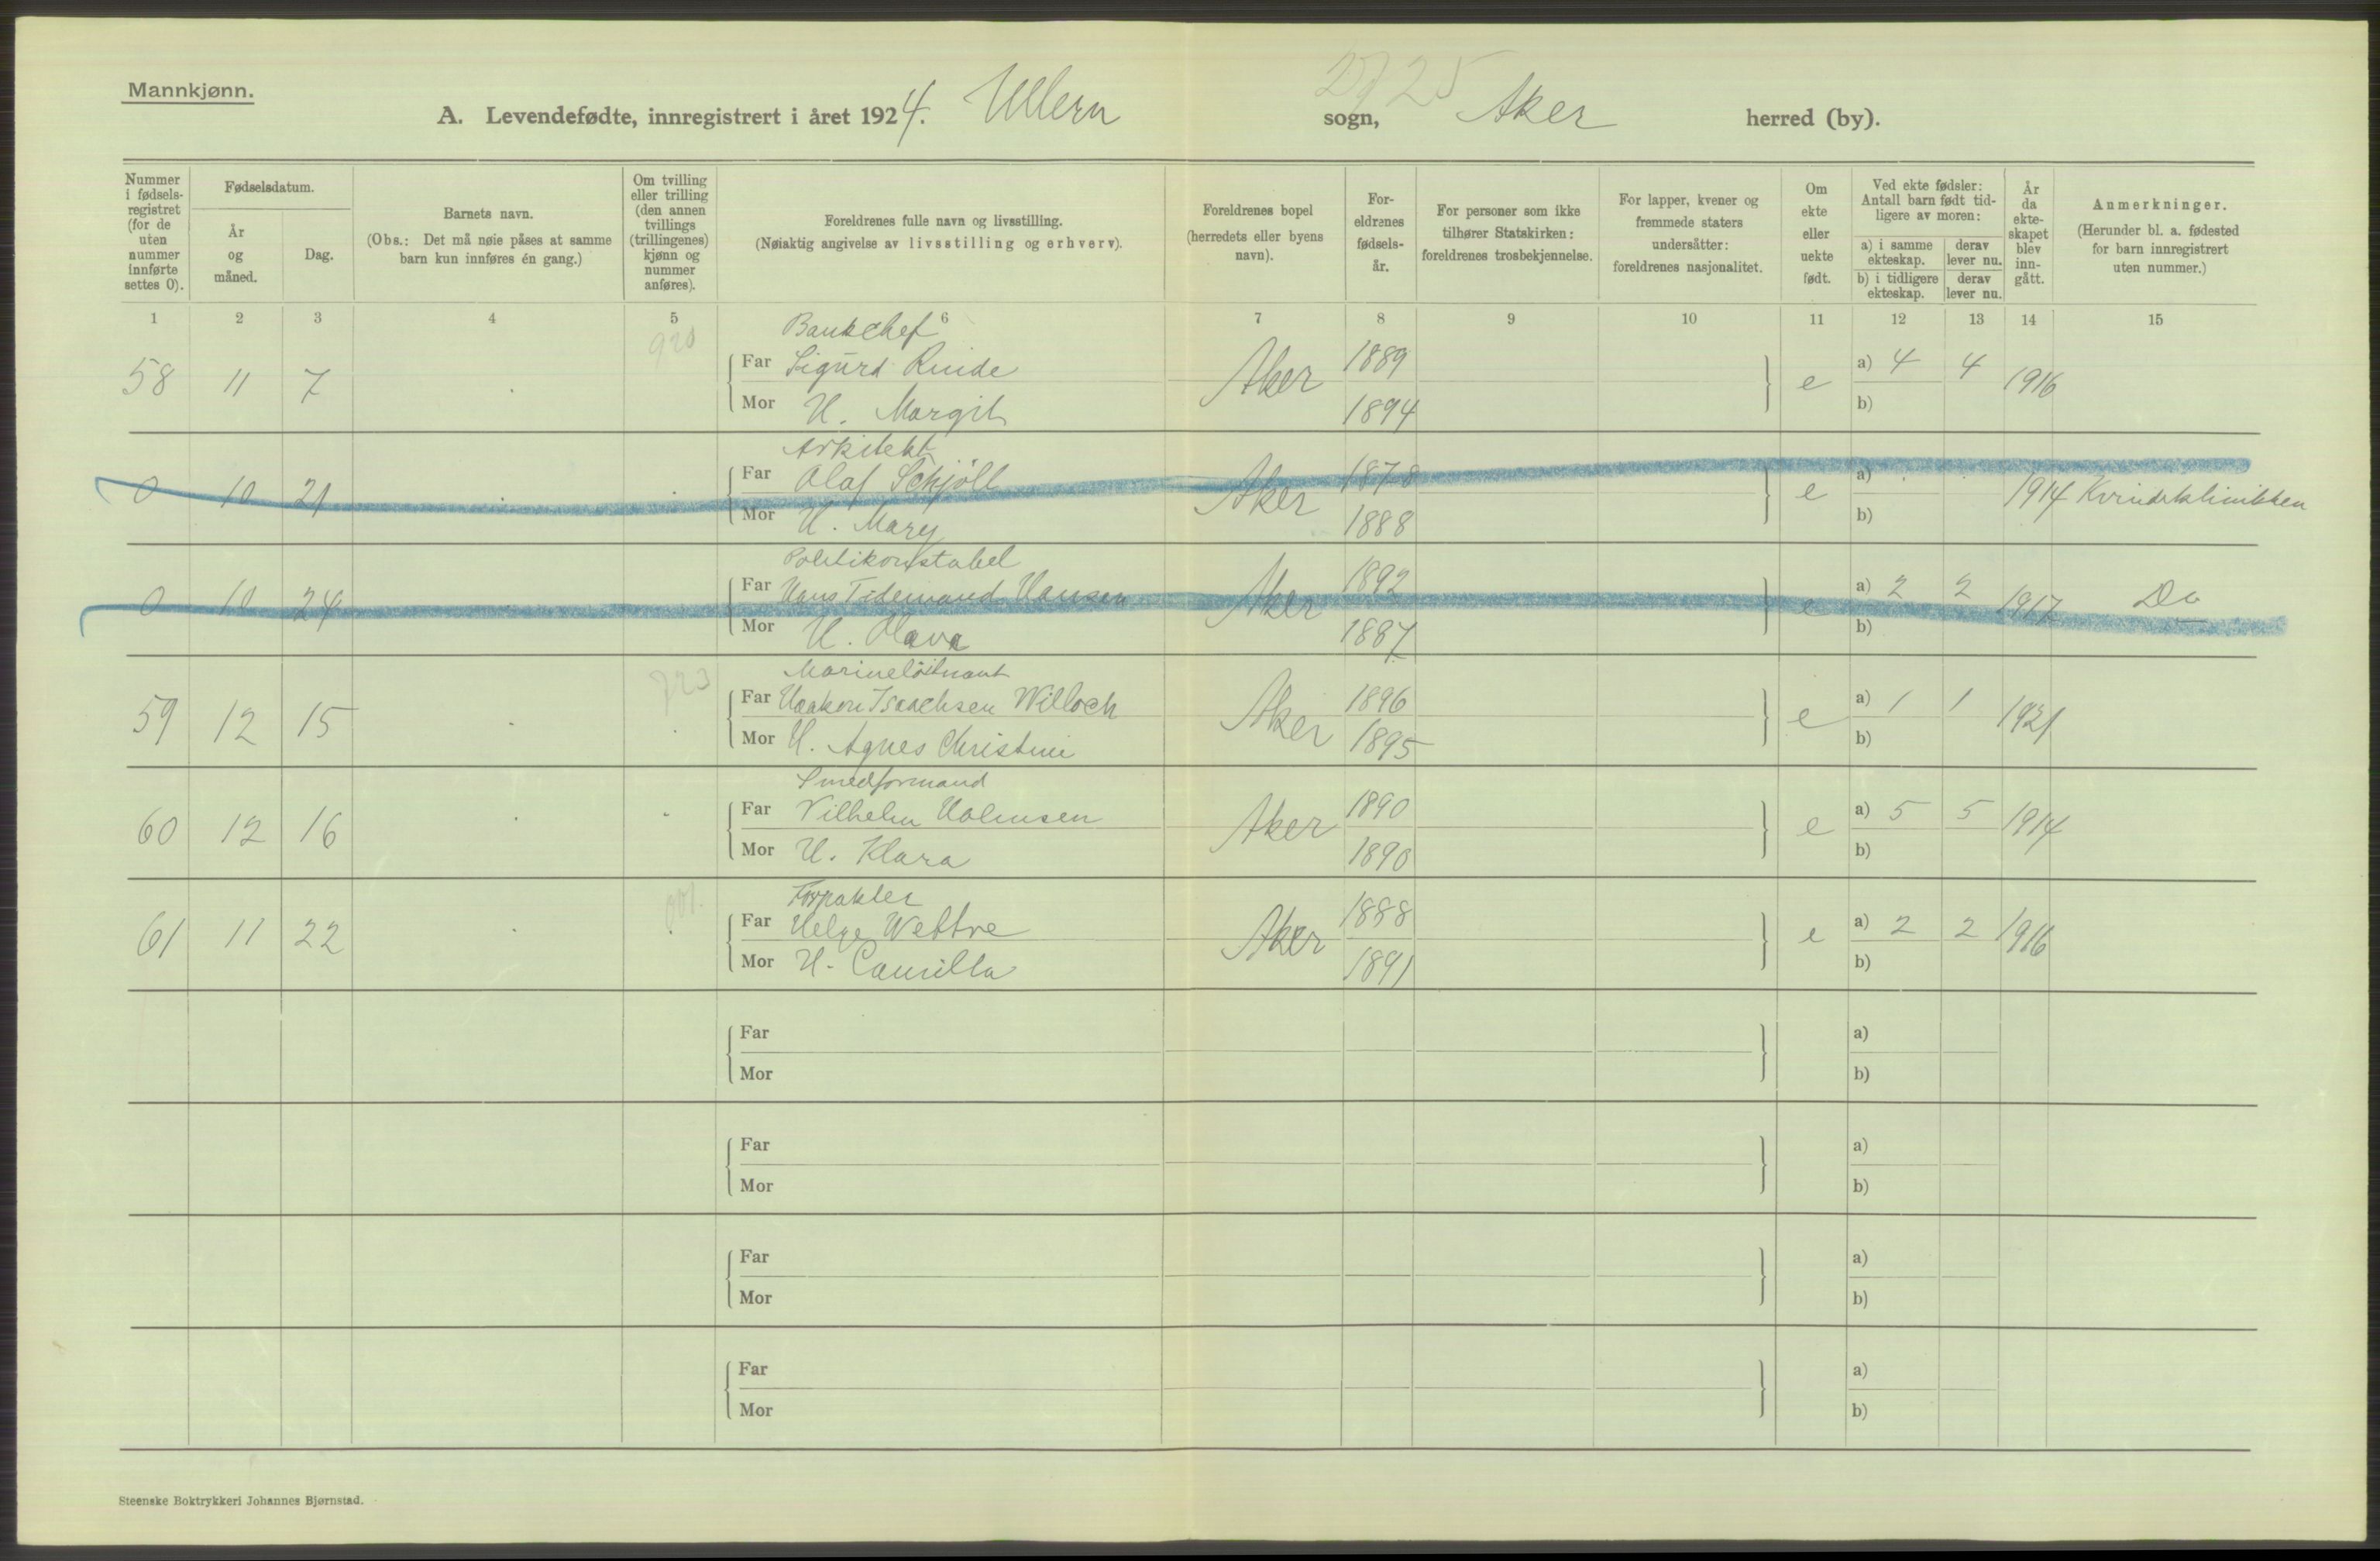 Mannkjønn.
A. Levendefødte, innregistrert i året 1924. Ullern sogn, Aker herred (by).
2925
Nummer i fødselsregistret (for de uten nummer innførte settes 0).
Fødselsdatum.
År og måned.
Dag.
Barnets navn.
(Obs.: Det må nøie påses at samme barn kun innføres én gang.)
Om tvilling eller trilling (den annen tvillings (trillingenes) kjønn og nummer anføres).
Foreldrenes fulle navn og livsstilling.
(Nøiaktig angivelse av livsstilling og erhverv).
Foreldrenes bopel (herredets eller byens navn).
Foreldrenes fødselsår.
For personer som ikke tilhører Statskirken: foreldrenes trosbekjennelse.
For lapper, kvener og fremmede staters undersåtter: foreldrenes nasjonalitet.
Om ekte eller uekte født.
Ved ekte fødsler: Antall barn født tidligere av moren:
a) i samme ekteskap. derav lever nu.
b) i tidligere ekteskap. derav lever nu.
År da ekteskapet blev inngått.
Anmerkninger.
(Herunder bl. a. fødested for barn innregistrert uten nummer.)
1 2 3 4 5 6 7 8 9 10 11 12 13 14 15
Bankchef
58 11 7 920 Far Sigurd Rinde Aker 1889 e a) 4 4 1916
Mor H. Margit 1894 b)
Arkitekt
0 10 21 Far Olaf Schjöll Aker 1878 e a) 1914 Kvindeklinikken
Mor H. Mary 1888 b)
Politikonstabel
0 10 24 Far Hans Tidemand Hansen Aker 1892 e a) 2 2 1917 Do
Mor H. Olava 1887 b)
Marineløitnant
59 12 15 Far Haakon Isaachsen Willoch Aker 1896 e a) 1 1 1921
Mor H. Agnes Christine 1895 b)
Smedformand
60 12 16 Far Vilhelm Holmsen Aker 1890 e a) 5 5 1914
Mor H. Klara 1890 b)
Forpakter
61 11 22 001. Far Helge Wettre Aker 1888 e a) 2 2 1916
Mor H. Camilla 1891 b)
Far a)
Mor b)
Far a)
Mor b)
Far a)
Mor b)
Far a)
Mor b)
Steenske Boktrykkeri Johannes Bjørnstad.